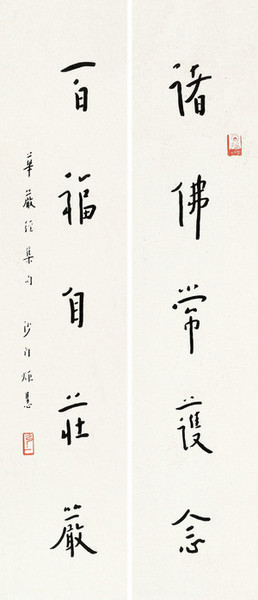 諸佛常護念
百福自莊嚴
華嚴經集句 沙門煙慧